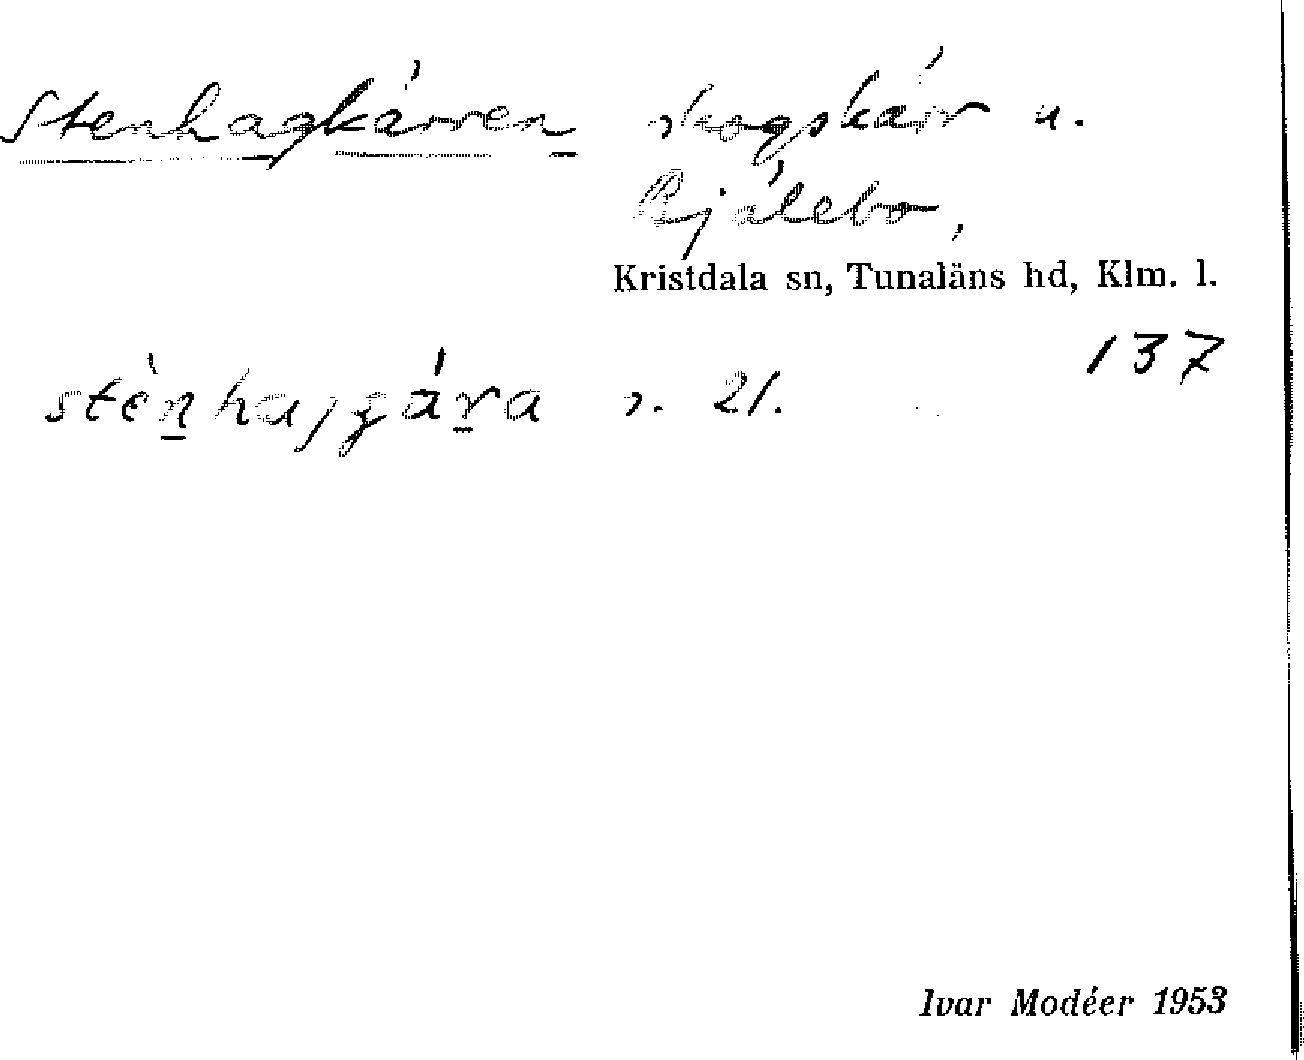 Stenhagkärren skogskärr u.
Bjälebo,
Kristdala sn, Tunaläns hd, Klm. l.
137
s. 21.
Ivar Modéer 1953